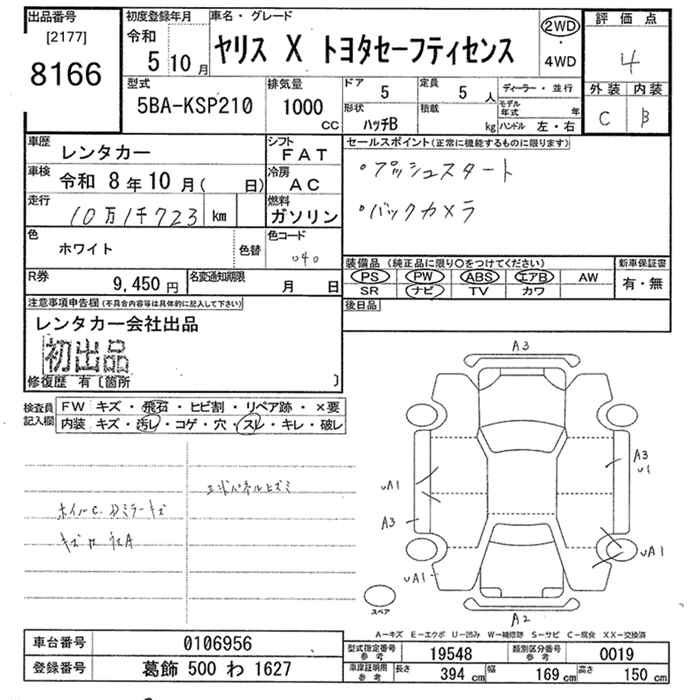 出品番号
[2177]
8166
初度登録年月
令和
5 10月
車名・グレード
ヤリス X トヨタセーフティセンス
2WD
・
4WD
評価点
4
外装 内装
C B
型式
5BA-KSP210
排気量
1000
CC
ドア
5
定員
5 人
ディーラー・並行
形状
ハッチB
積載
kg
モデル年式 年
ハンドル 左・右
車歴
レンタカー
シフト
FAT
車検
令和 8年10月( 日)
冷房
AC
走行
10万1千723 km
燃料
ガソリン
色
ホワイト
色替
色コード
040
R券
9,450円
名変通知期限
月 日
セールスポイント(正常に機能するものに限ります)
・プッシュスタート
・バックカメラ
装備品(純正品に限り○をつけてください)
PS PW ABS エアB AW
SR ナビ TV カワ
新車保証書
有・無
後日品
注意事項申告欄(不具合内容等は具体的に記入して下さい)
レンタカー会社出品
初出品
修復歴 有〔箇所 〕
検査員
記入欄
FW キズ・飛石・ヒビ割・リペア跡・×要
内装 キズ・汚レ・コゲ・穴・スレ・キレ・破レ
ホイルC.Dミラーキズ
A3
UA1
A3
UA1
A3
U1
UA1
A2
スペア
A-キズ E-エクボ U-凹み W-補修跡 S-サビ C-腐食 XX-交換済
車台番号
0106956
登録番号
葛飾 500 わ 1627
型式指定番号
参考
19548
類別区分番号
参考
0019
車庫証明用
参考
長さ 394 cm 幅 169 cm 高さ 150 cm